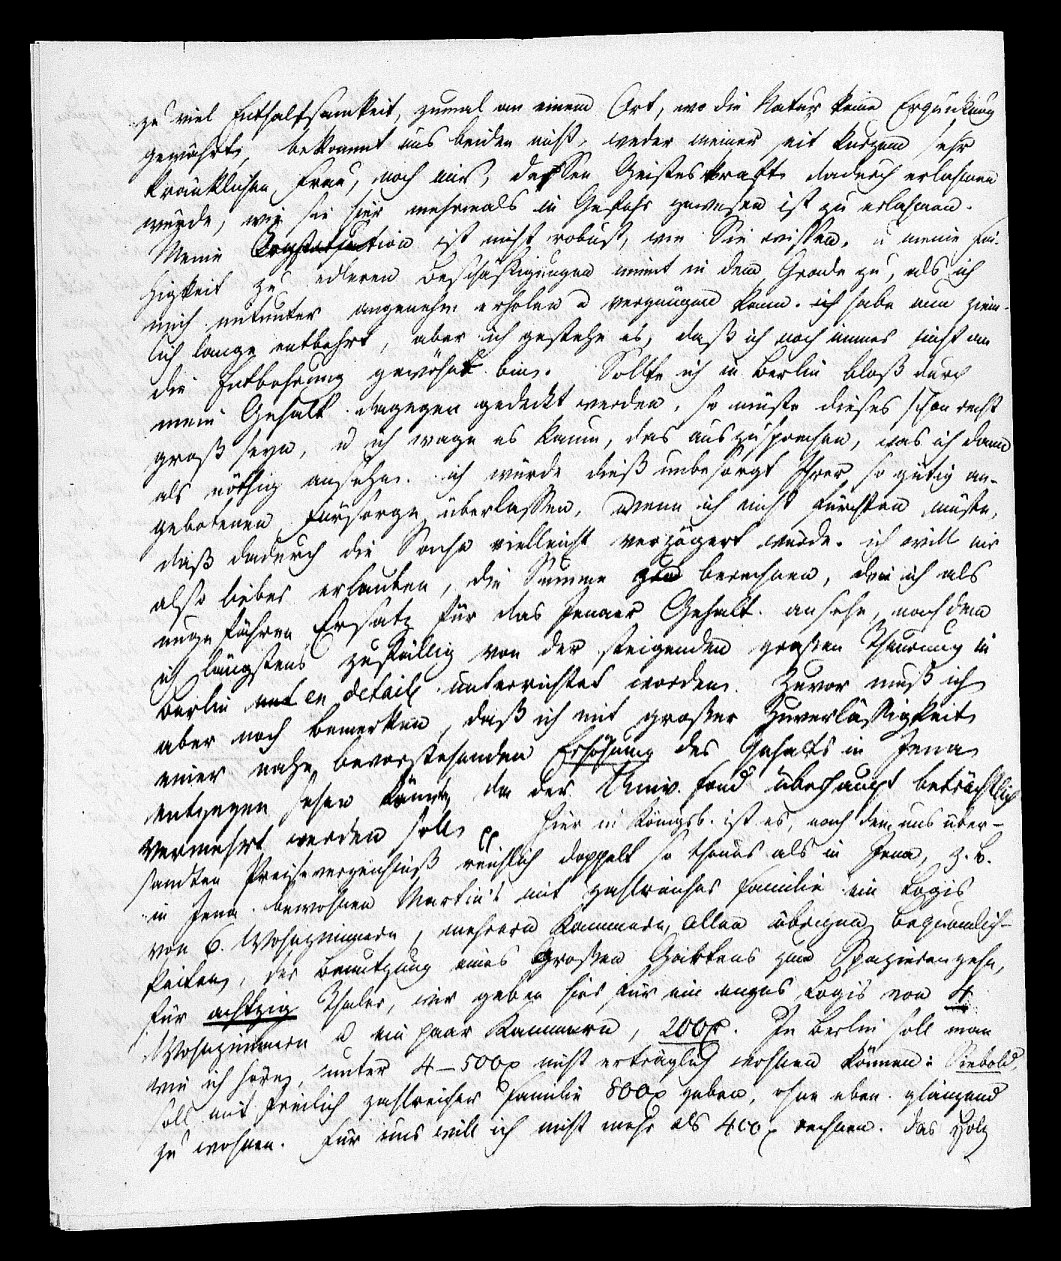 zu viel Enthaltsamkeit, zumal an einem Ort, wo die Natur keine Erquickung
gewährt, bekommt uns beiden nicht, weder meiner seit kurzem sehr
kränklichen Frau, noch mir, dessen Geisteskraft dadurch erlahmen
würde, wie sie hier mehrmals in Gefahr gewesen ist zu erlahmen.
Meine Constitution ist nicht robust, wie Sie wissen, u meine Fä-
higkeit zu edleren Beschäftigungen nimt in dem Grade zu, als ich
mich mitunter angenehm erholen u vergnügen kann. ich habe nun ziem-
lich lange entbehrt, aber ich gestehe es, daß ich noch immer nicht an
die Entbehrung gewöhnt bin. Sollte ich in Berlin bloß durch
mein Gehalt dagegen gedeckt werden, so müßte dieses schon recht
groß seyn, u ich wage es kaum, das auszusprechen, was ich dann
als nöthig ansehe. ich würde dieß unbesorgt Ihrer so gütig an-
gebotenen Fürsorge überlassen, wenn ich nicht fürchten müßte,
daß dadurch die Sache vielleicht verzögert würde. ich will mir
also lieber erlauben, die Summe zu berechnen, die ich als
ungefähren Ersatz für das Jenaer Gehalt ansehe, nachdem
ich längstens zufällig von der steigenden großen Theurung in
Berlin en detail unterrichtet worden. Zuvor muß ich
aber noch bemerken, daß ich mit großer Zuverlässigkeit
einer nahe bevorstehenden Erhöhung des Gehalts in Jena
entgegen sehen könnte, da der Univ. fond überhaupt beträchtlich
vermehrt werden soll pp Hier in Königsb. ist es, nach dem uns über-
sandten Preisverzeichniß reichlich doppelt so theuer als in Jena, z. B.
in Jena bewohnen Martin's mit zahlreicher Familie ein Logis
von 6 Wohnzimmern, mehreren Kammern, allen übrigen Bequemlich-
keiten, der Benutzung eines großen Gartens zum Spazierengehn,
für achtzig Thaler, wir geben hier für ein enges Logis von 4
Wohnzimmern u ein paar Kammern, 200. In Berlin soll man
wie ich höre, unter 4–500 nicht erträglich wohnen können: Siebold,
soll mit freilich zahlreicher Familie 800 geben, ohne eben glänzend
zu wohnen. Für uns will ich nicht mehr als 400 rechnen. Das Holz